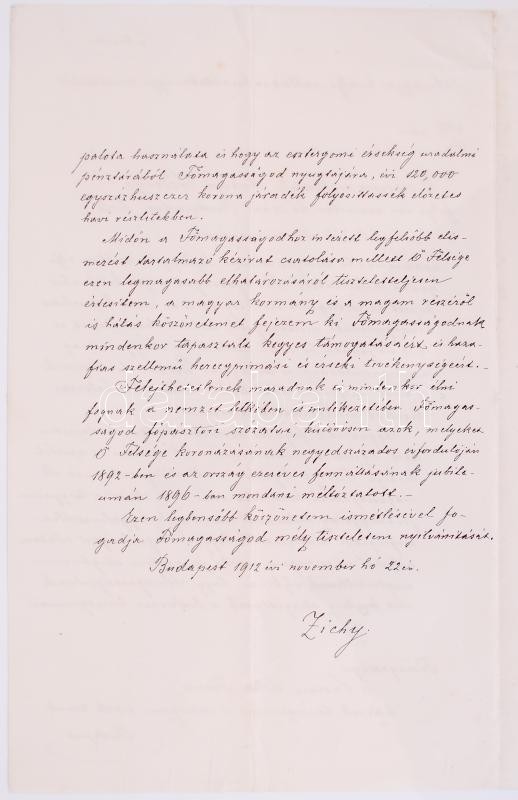 palota használata és hogy az esztergomi érsekség uradalmi
pénztárából Főmagasságod nyugtájára, évi 120,000
egyszázhuszezer korona járadék folyósíttassék előzetes
havi részletekben.
Midőn a Főmagasságodhoz intézett legfelsőbb elis-
merést tartalmazó kézirat csatolása mellett Ő Felsége
ezen legmagasabb elhatározásáról tiszteletteljesen
értesítem, a magyar kormány és a magam részéről
is hálás köszönetemet fejezem ki Főmagasságodnak
mindenkor tapasztalt kegyes támogatásáért és haza-
fias szellemű hercegprimási és érseki tevékenységeért.-
Felejthetetlenek maradnak és mindenkor élni
fognak a nemzet lelkében és emlékezetében Főmagas-
ságod főpásztori szózatai, különösen azok, melyeket
Ő Felsége koronázásának negyedszázados évfordulóján
1892-ben és az ország ezeréves fennállásának jubile-
umán 1896-ban mondani méltóztatott.-
Ezen legbensőbb köszönetem ismétlésével fo-
gadja Főmagasságod mély tiszteletem nyilvánítását.
Budapest 1912 évi november hó 22én.
Zichy.
darabanth